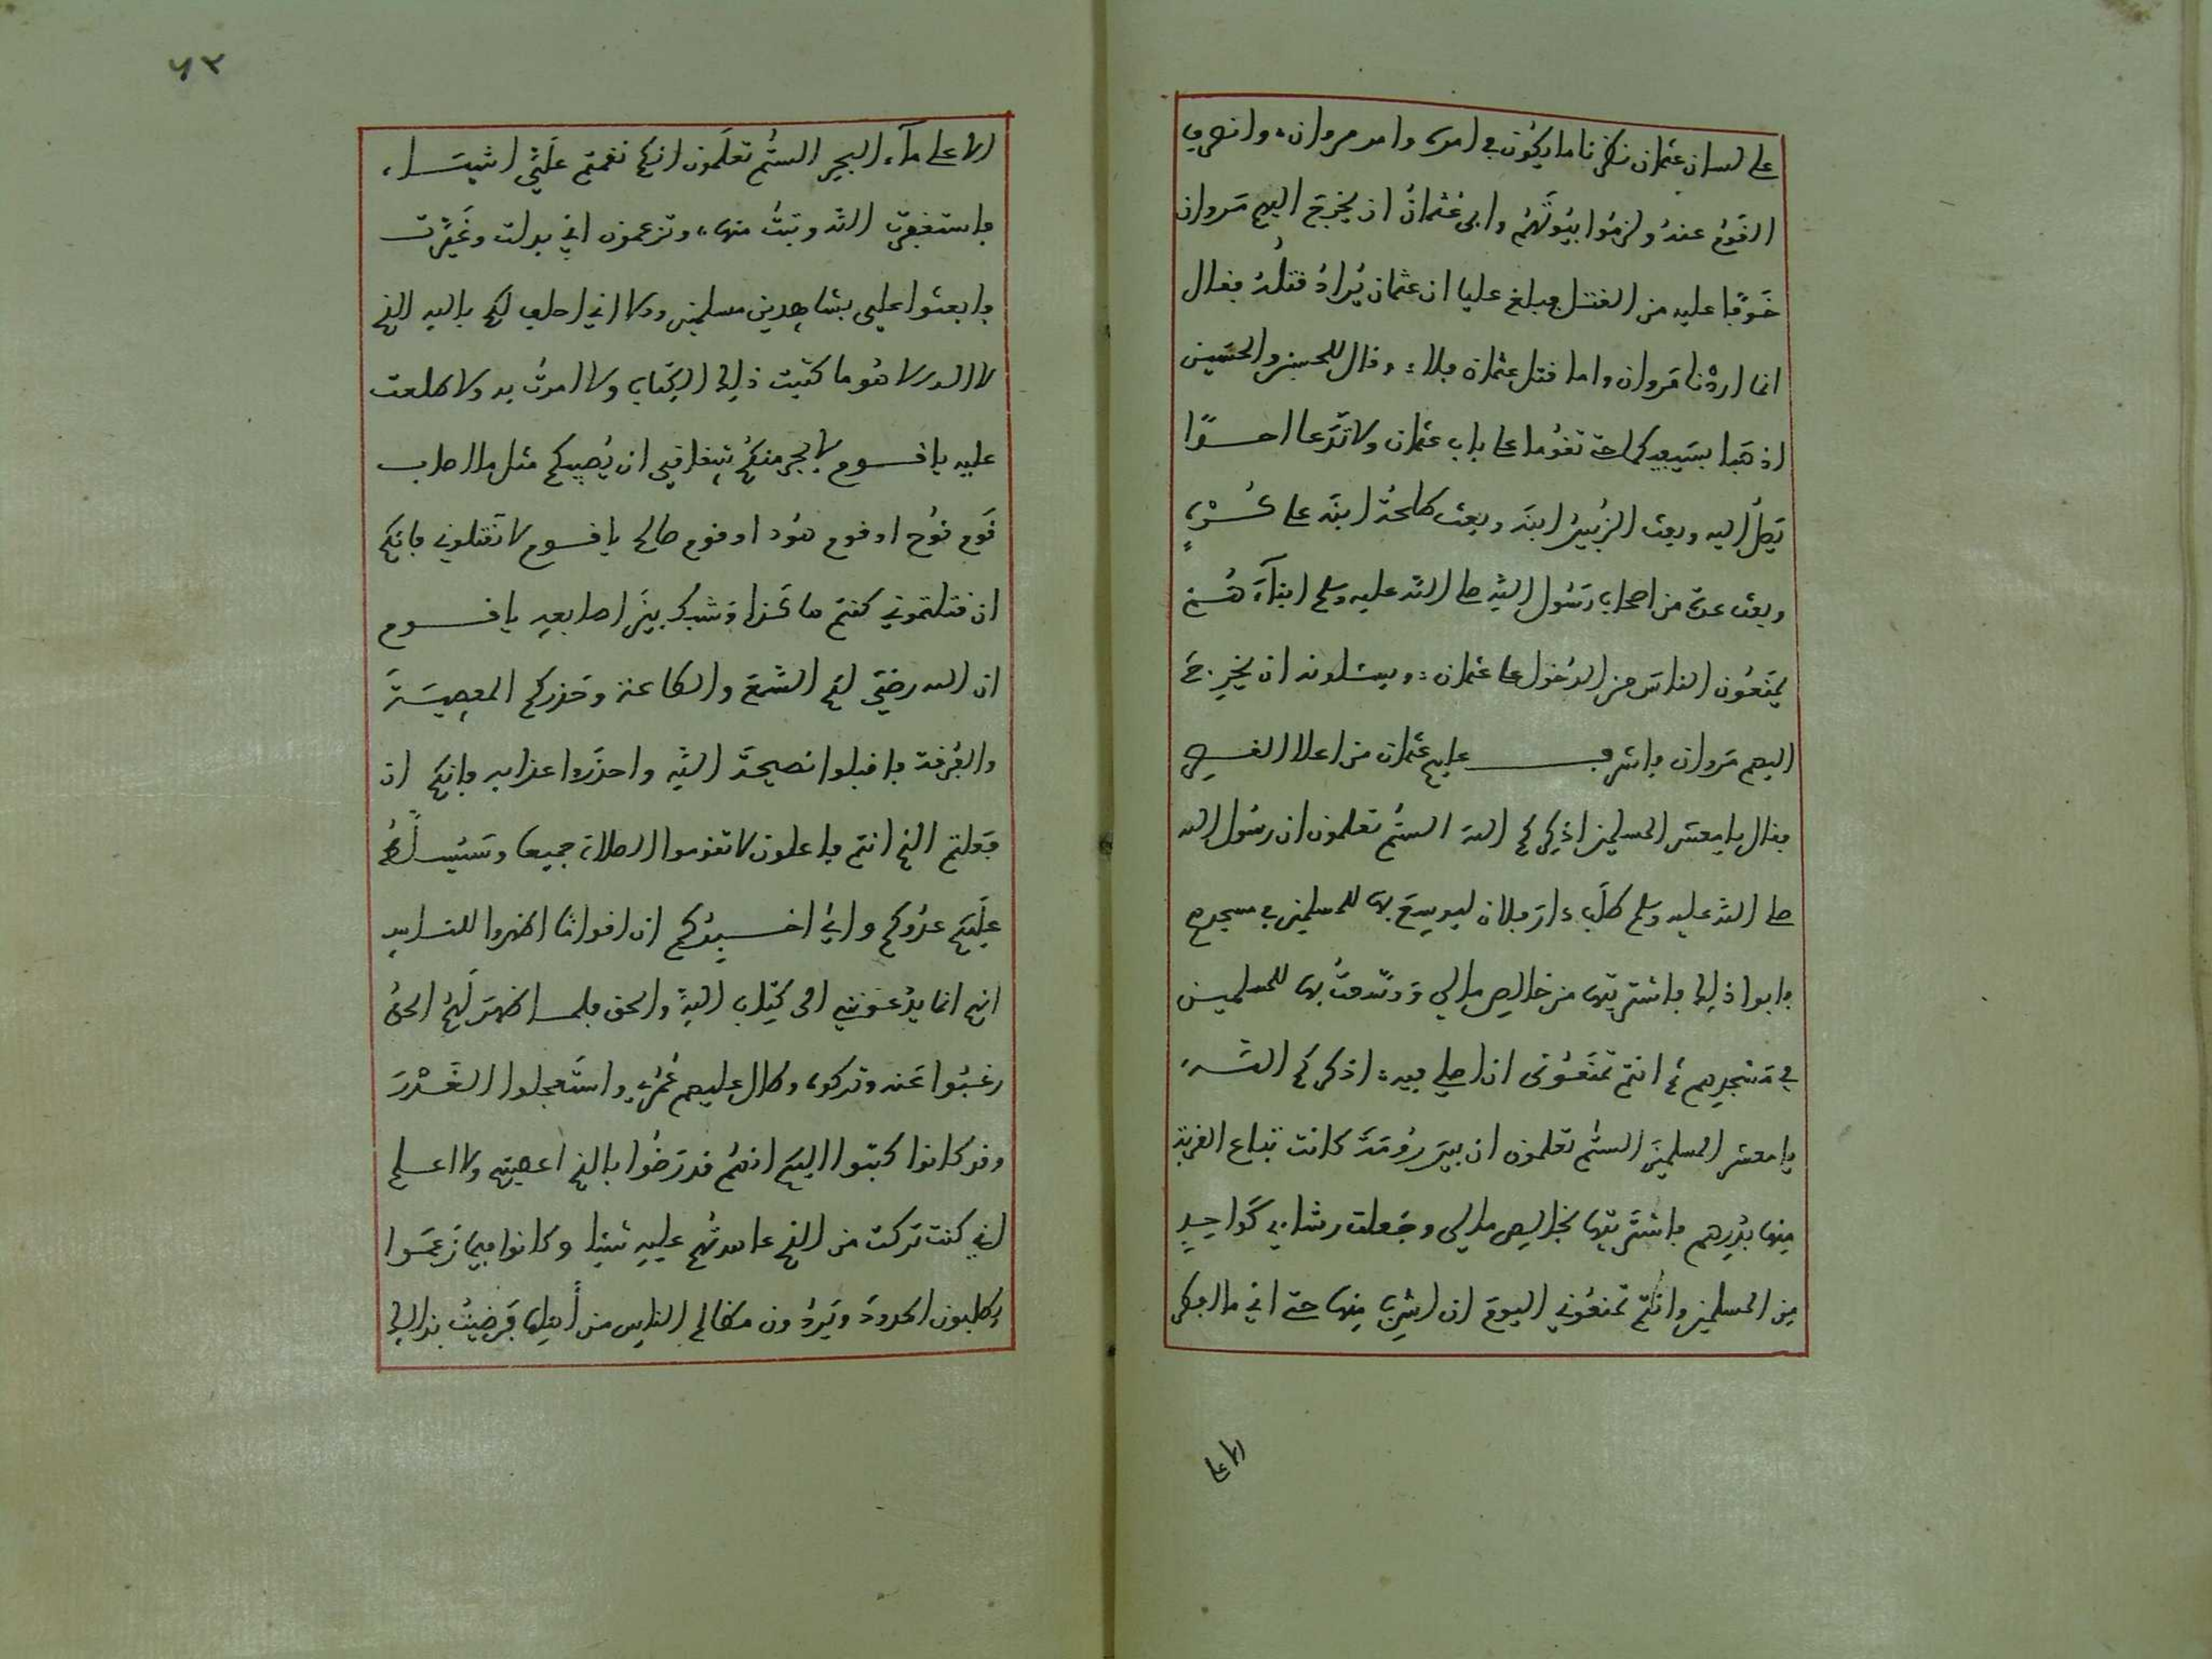 على لسان عثمان نظرنا ما يكون في امره وامر مروان وانصرف
القوم عنه ولزموا بيوتهم وابى عثمان ان يخرج اليهم مروان
خوفا عليه من القتل فبلغ عليا ان عثمان يراد قتله فقال
انما اردنا مروان واما قتل عثمان فلا وقال للحسن والحسين
اذهبا بسيفيكما حتى تقوما على باب عثمان ولا تدعا احدا
يصل اليه وبعث الزبير ابنه وبعث طلحة ابنه على كره
وبعث عدة من اصحاب رسول الله صلى الله عليه وسلم ابناءهم
يمنعون الناس من الدخول على عثمان ويسئلونه ان يخرج
اليهم مروان فاشرف عليهم عثمان من اعلا القصر
فقال يا معشر المسلمين اذكركم الله الستم تعلمون ان رسول الله
صلى الله عليه وسلم طلب دار فلان ليوسع بها للمسلمين في مسجدهم
فابوا ذلك فاشتريتها من خالص مالي ووسعت بها للمسلمين
في مسجدهم ثم انتم تمنعوني ان اصلي فيه اذكركم الله
يا معشر المسلمين الستم تعلمون ان بير رومة كانت تباع القربة
منها بدرهم فاشتريتها بخالص مالي وجعلت رشاءي كواحد
من المسلمين وانتم تمنعوني اليوم ان اشرب منها حتى اني ما افطر
الا على
٦٢
الا على ماء البحر الستم تعلمون انكم نقمتم علي اشياء
فاستغفرت الله وتبت منها وتزعمون اني بدلت وغيرت
فابعثوا علي بشاهدين مسلمين والا اني احلف لكم بالله الذي
لا اله الا هو ما كتبت ذلك الكتاب ولا امرت به ولا طلعت
عليه يا قوم لا يجرمنكم شقاقي ان يصيبكم مثل ما اصاب
قوم نوح او قوم هود او قوم صالح يا قوم لا تقتلوني فانكم
ان قتلتموني كنتم هاكذا وشبك بين اصابعه يا قوم
ان الله رضي لكم السمع والطاعة وحذركم المعصية
والفرقة فاقبلوا نصيحة الله واحذروا عذابه فانكم ان
فعلتم الذي انتم فاعلون لا تقوموا الصلاة جميعا وسيسلط
عليكم عدوكم واني اخبركم ان اقواما اظهروا للناس
انهم انما يدعونني الى كتاب الله والحق فلما اظهر لهم الحق
رغبوا عنه وتركوه وطال عليهم عمري واستعجلوا القدر
وقد كانوا كتبوا اليكم انهم قد رضوا بالذي اعطيتهم ولا اعلم
اني كنت تركت من الذي عاهدتهم عليه شيئا وكانوا فيما زعموا
يطلبون الحدود ويردون مظالم الناس من أهلها فرضيت بذلك